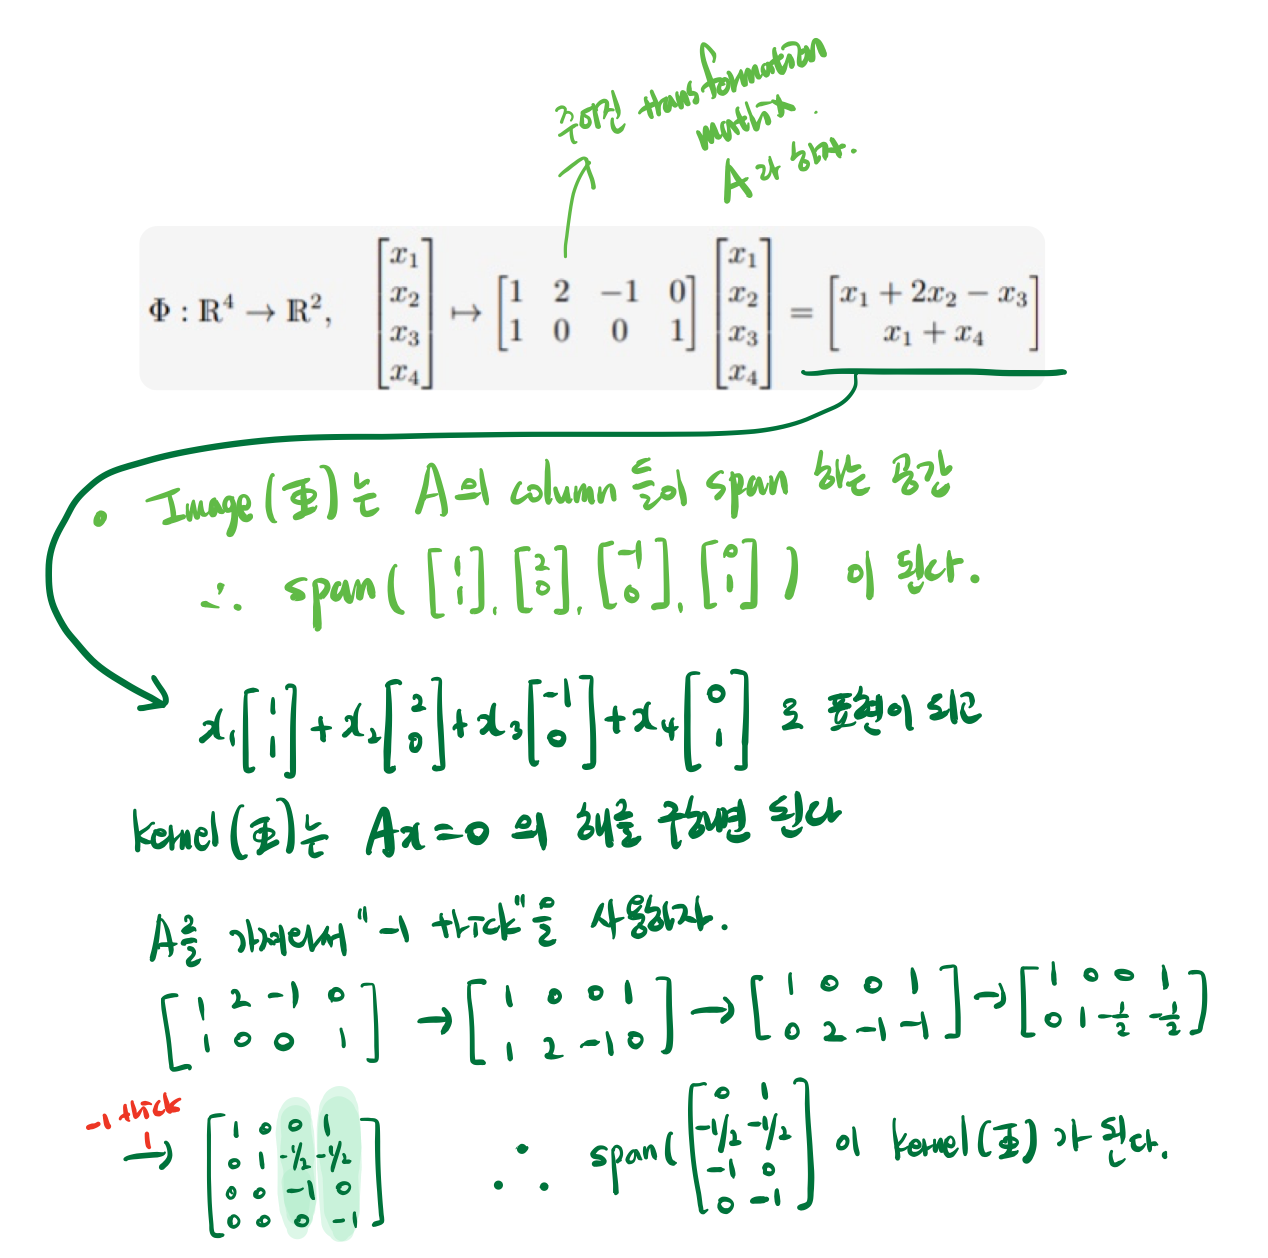 주어진 transformation
matrix.
A라 하자.
Φ : ℝ⁴ → ℝ², [x₁ x₂ x₃ x₄] ↦ [1 2 −1 0; 1 0 0 1] [x₁ x₂ x₃ x₄] = [x₁ + 2x₂ − x₃; x₁ + x₄]
• Image(Φ)는 A의 column 들이 span 하는 공간
∴ span( [1 1], [2 0], [-1 0], [0 1] ) 이 된다.
x₁[1 1] + x₂[2 0] + x₃[-1 0] + x₄[0 1] 로 표현이 되고
kernel(Φ)는 Ax=0 의 해를 구하면 된다
A를 가져와서 "-1 trick"을 사용하자.
[1 2 -1 0; 1 0 0 1] → [1 0 0 1; 1 2 -1 0] → [1 0 0 1; 0 2 -1 -1] → [1 0 0 1; 0 1 -1/2 -1/2]
-1 trick
1
→ [1 0 0 1; 0 1 -1/2 -1/2; 0 0 -1 0; 0 0 0 -1] ∴ span( [0 1; -1/2 -1/2; -1 0; 0 -1] 이 kernel(Φ)가 된다.